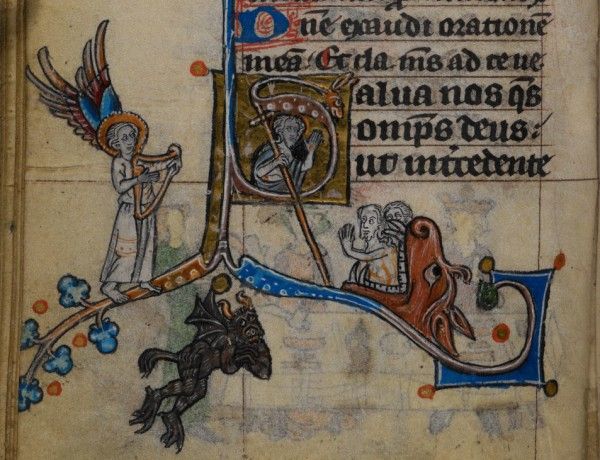 Dn̄e exaudi orationē
meā. Et cla. m̄s ad te ue
Salua nos qs̄
omp̄s deus:
ut int̄cedente